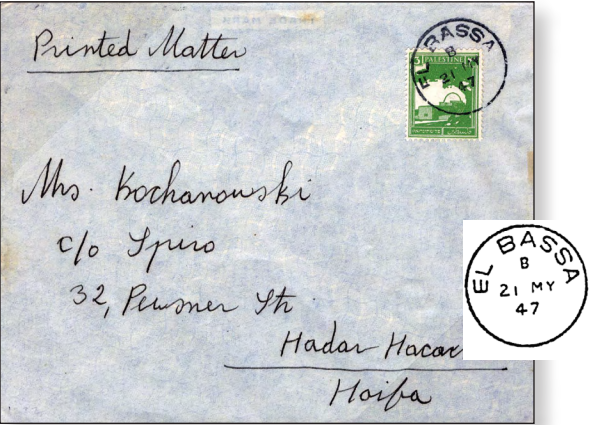 Printed Matter
EL BASSA
B
21 MY
47
PALESTINE
Mrs. Kochanowski
c/o Spiro
32, Pewsner Str
Hadar Hacar
Haifa
EL BASSA
B
21 MY
47